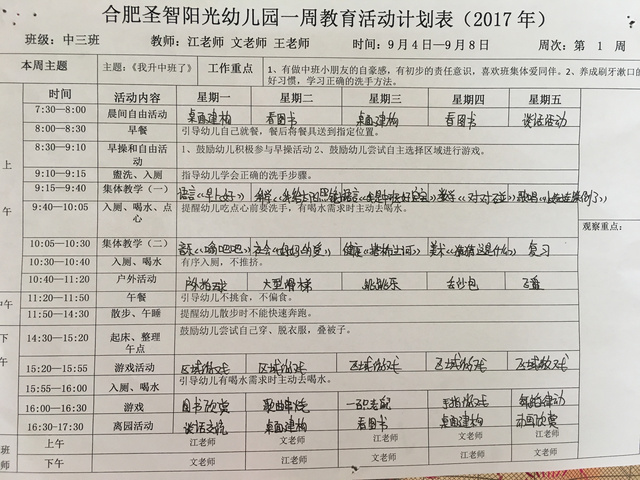 合肥圣智阳光幼儿园一周教育活动计划表（2017 年）
班级：中三班 教师：江老师 文老师 王老师 时间：9 月 4 日—9 月 8 日 周次：第 1 周
本周主题 主题：《我升中班了》 工作重点 1、有做中班小朋友的自豪感，有初步的责任意识，喜欢班集体爱同伴。2、养成刷牙漱口的
好习惯，学习正确的洗手方法。
时间 活动内容 星期一 星期二 星期三 星期四 星期五
7:30—8:00 晨间自由活动 桌面建构 看图书 桌面建构 看图书 谈话活动
8:00—8:30 早餐 引导幼儿自己就餐，餐后将餐具送到指定位置。
8:30—9:10 早操和自由活动 1、鼓励幼儿积极参与早操活动 2、鼓励幼儿尝试自主选择区域进行游戏。
9:10—9:15 盥洗、入厕 指导幼儿学会正确的洗手步骤。
上午
9:15—9:40 集体教学（一） 语言《早上好》
9:40—10:05 入厕、喝水、点心 提醒幼儿吃点心前要洗手，有喝水需求时主动去喝水。
观察重点：
10:05—10:30 集体教学（二） 音乐 社会 健康 美术 复习
10:30—10:40 入厕、喝水 有序入厕，不推挤。
10:40—11:20 户外活动 大型滑梯 跳跳乐 丢沙包
中午
11:20—11:50 午餐 引导幼儿不挑食，不偏食。
11:50—14:30 散步、午睡 提醒幼儿散步时不能快速奔跑。
下午
14:30—15:20 起床、整理 午点 鼓励幼儿尝试自己穿、脱衣服，叠被子。
15:20—15:55 游戏活动 区域游戏 区域游戏 区域游戏 区域游戏 区域游戏
15:55—16:00 入厕、喝水 引导幼儿有喝水需求时主动去喝水。
16:00—16:30 游戏 图书欣赏 歌曲串烧 手指游戏 舞蹈律动
16:30-17:30 离园活动 谈话交流 桌面建构 看图书 桌面建构 动画欣赏
班 上午 江老师 文老师 江老师 文老师 江老师
老师 下午 文老师 江老师 文老师 江老师 文老师